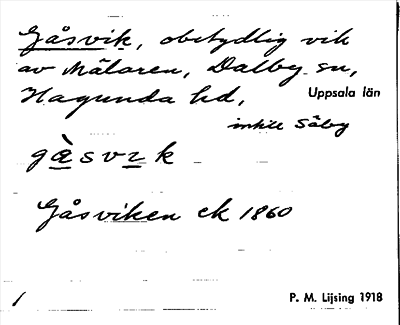 Gåsvik, obetydlig vik
av Mälaren, Dalby sn,
Hagunda hd, Uppsala län
intill Säby
gàsvɪk
Gåsviken ek 1860
1 P. M. Lijsing 1918